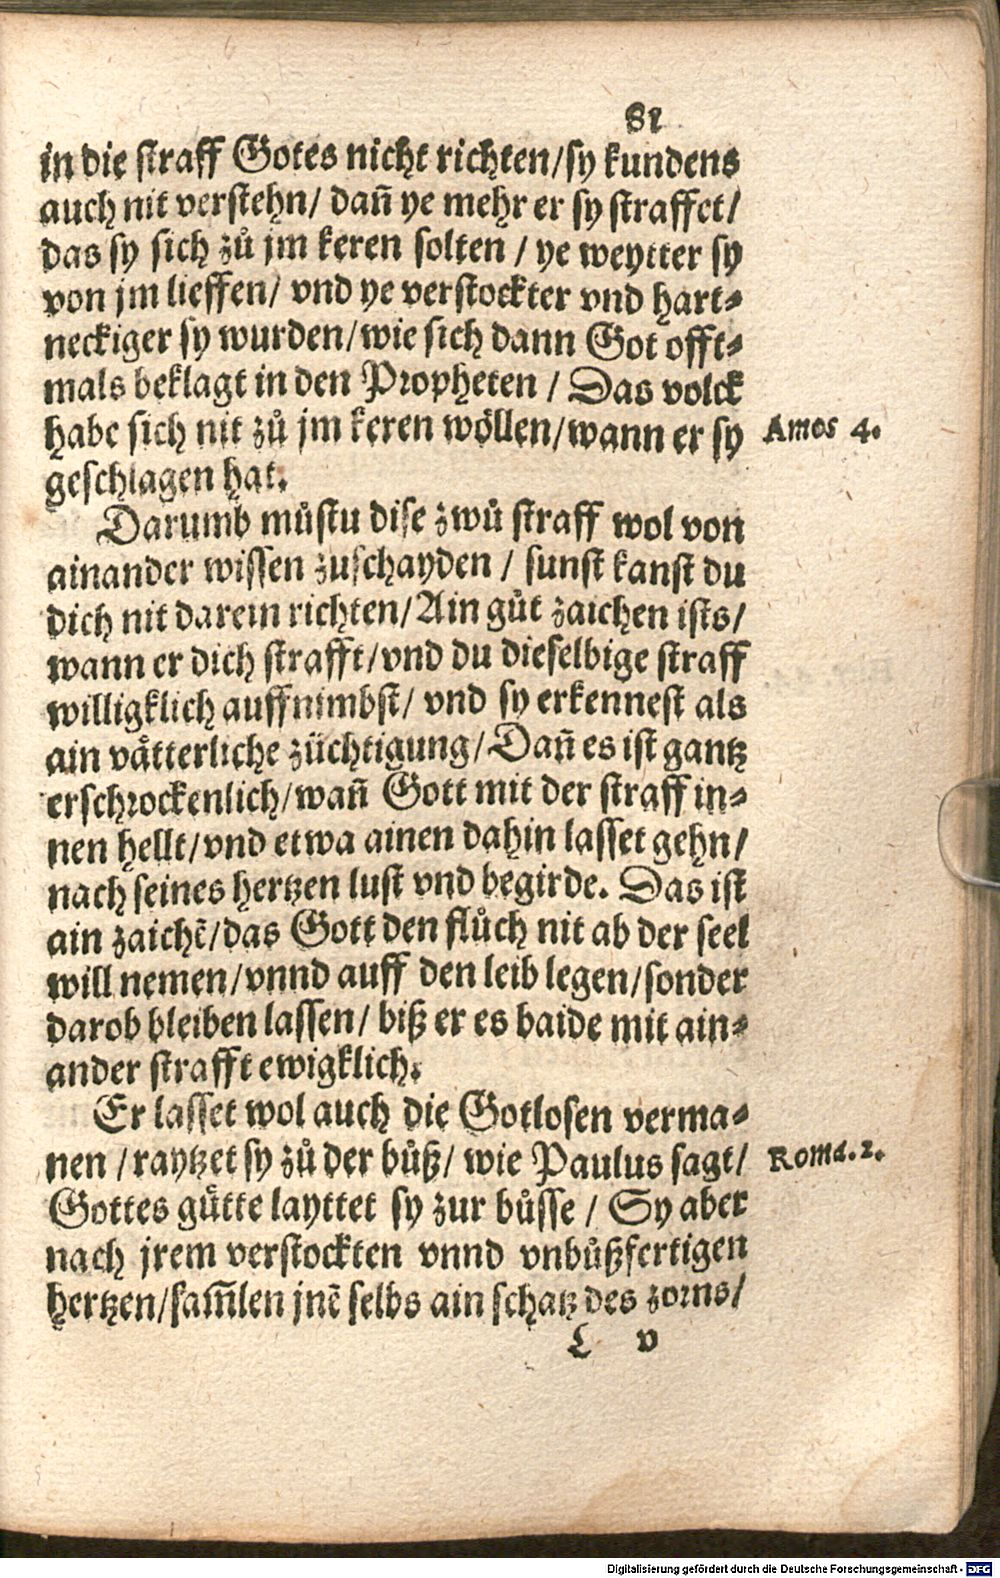 81
in die straff Gotes nicht richten/sy kundens
auch nit verstehn/ dañ ye mehr er sy straffet/
das sy sich zů jm keren solten / ye weytter sy
von jm lieffen/ vnd ye verstockter vnd hart⸗
neckiger sy wurden/wie sich dann Got offt⸗
mals beklagt in den Propheten / Das volck
habe sich nit zů jm keren wöllen/wann er sy
Amos 4.
geschlagen hat.
Darumb můstu dise zwů straff wol von
ainander wissen zuschayden / sunst kanst du
dich nit darein richten/Ain gůt zaichen ists/
wann er dich strafft/vnd du dieselbige straff
willigklich auffnimbst/ vnd sy erkennest als
ain våtterliche züchtigung/Dañ es ist gantz
erschrockenlich/wañ Gott mit der straff in⸗
nen hellt/vnd etwa ainen dahin lasset gehn/
nach seines hertzen lust vnd begirde. Das ist
ain zaichẽ/das Gott den flůch nit ab der seel
will nemen/vnnd auff den leib legen/sonder
darob bleiben lassen/ biß er es baide mit ain⸗
ander strafft ewigklich.
Er lasset wol auch die Gotlosen verma⸗
nen /raytzet sy zů der bůß/ wie Paulus sagt/
Roma. 2.
Gottes gůtte layttet sy zur bůsse / Sy aber
nach jrem verstockten vnnd vnbůßfertigen
hertzen/sam̃len jnẽ selbs ain schatz des zorns/
L v
Digitalisierung gefördert durch die Deutsche Forschungsgemeinschaft - DFG